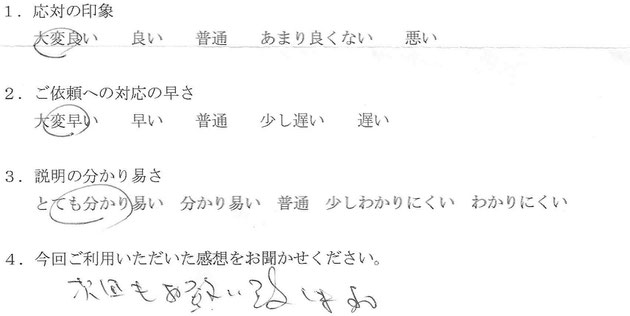 1．応対の印象
大変良い　良い　普通　あまり良くない　悪い
2．ご依頼への対応の早さ
大変早い　早い　普通　少し遅い　遅い
3．説明の分かり易さ
とても分かり易い　分かり易い　普通　少しわかりにくい　わかりにくい
4．今回ご利用いただいた感想をお聞かせください。
次回もお願い致します